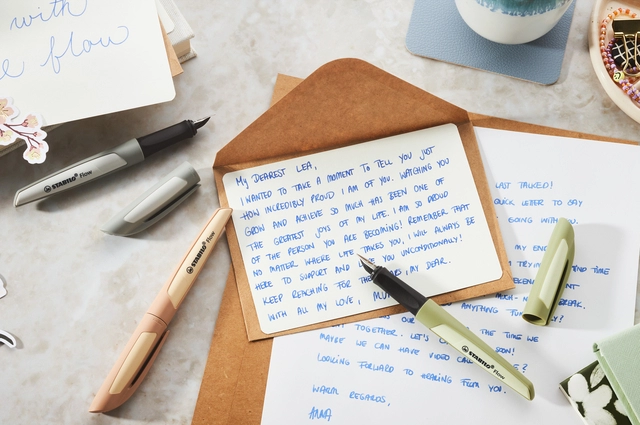 with
flow
STABILO flow
STABILO flow
My DEAREST LEA,
I WANTED TO TAKE A MOMENT TO TELL YOU JUST
HOW INCREDIBLY PROUD I AM OF YOU. WATCHING YOU
GROW AND ACHIEVE SO MUCH HAS BEEN ONE OF
THE GREATEST JOYS OF MY LIFE. I AM SO PROUD
OF THE PERSON YOU ARE BECOMING! REMEMBER THAT
NO MATTER WHERE LIFE TAKES YOU, I WILL ALWAYS BE
HERE TO SUPPORT AND YOU UNCONDITIONALLY!
KEEP REACHING FOR THE MY DEAR.
WITH ALL MY LOVE,
STABILO flow
LAST TALKED!
QUICK LETTER TO SAY
GOING WITH
MY
TIME
BREAK.
OUR THE TIME WE
TOGETHER. LET'S SOON!
MAYBE WE CAN HAVE VIDEO
LOOKING FORWARD TO HEARING FROM YOU.
WARM REGARDS,
ANNA